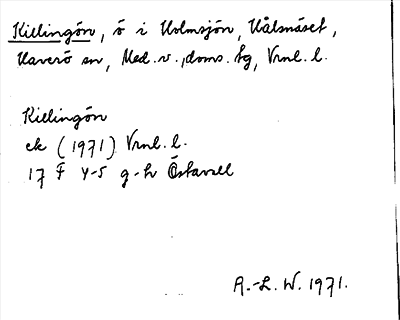 Killingön, ö i Holmsjön, Kålsnäset,
Haverö sn, Med. v., doms. tg, Vrnl. l.
Killingön
ek (1971) Vrnl. l.
17 F 4-5 g-h Östavall
A.-L. W. 1971.